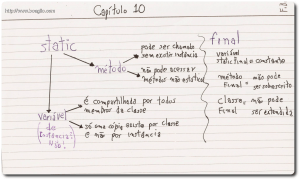 Capítulo 10
static
método
pode ser chamado
sem existir instância
não pode acessar
métodos não estáticos
variável
(de
instância?
Não!)
é compartilhada por todos
membros da classe
só uma cópia existe por classe
e não por instância
final
variável
static final = constante
método = não pode
Final ser sobrescrito
classe = não pode
Final ser extendida